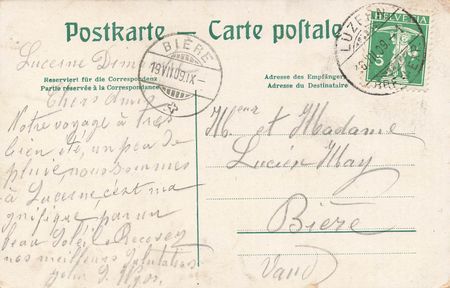 Postkarte – Carte postale
Lucerne Dim
Reserviert für die Correspondenz
Partie réservée à la Correspondance
Chers Amis
Notre voyage a très
bien été, un peu de
pluie nous sommes
à Lucerne c'est ma
gnifique par un
beau Soleil Recevez
nos meilleures Salutations
BIÈRE
19 VII 09 IX
LUZERN
HELVETIA
5
Adresse des Empfängers
Adresse du Destinataire
Mr et Madame
Lucien May
Bière
Vaud